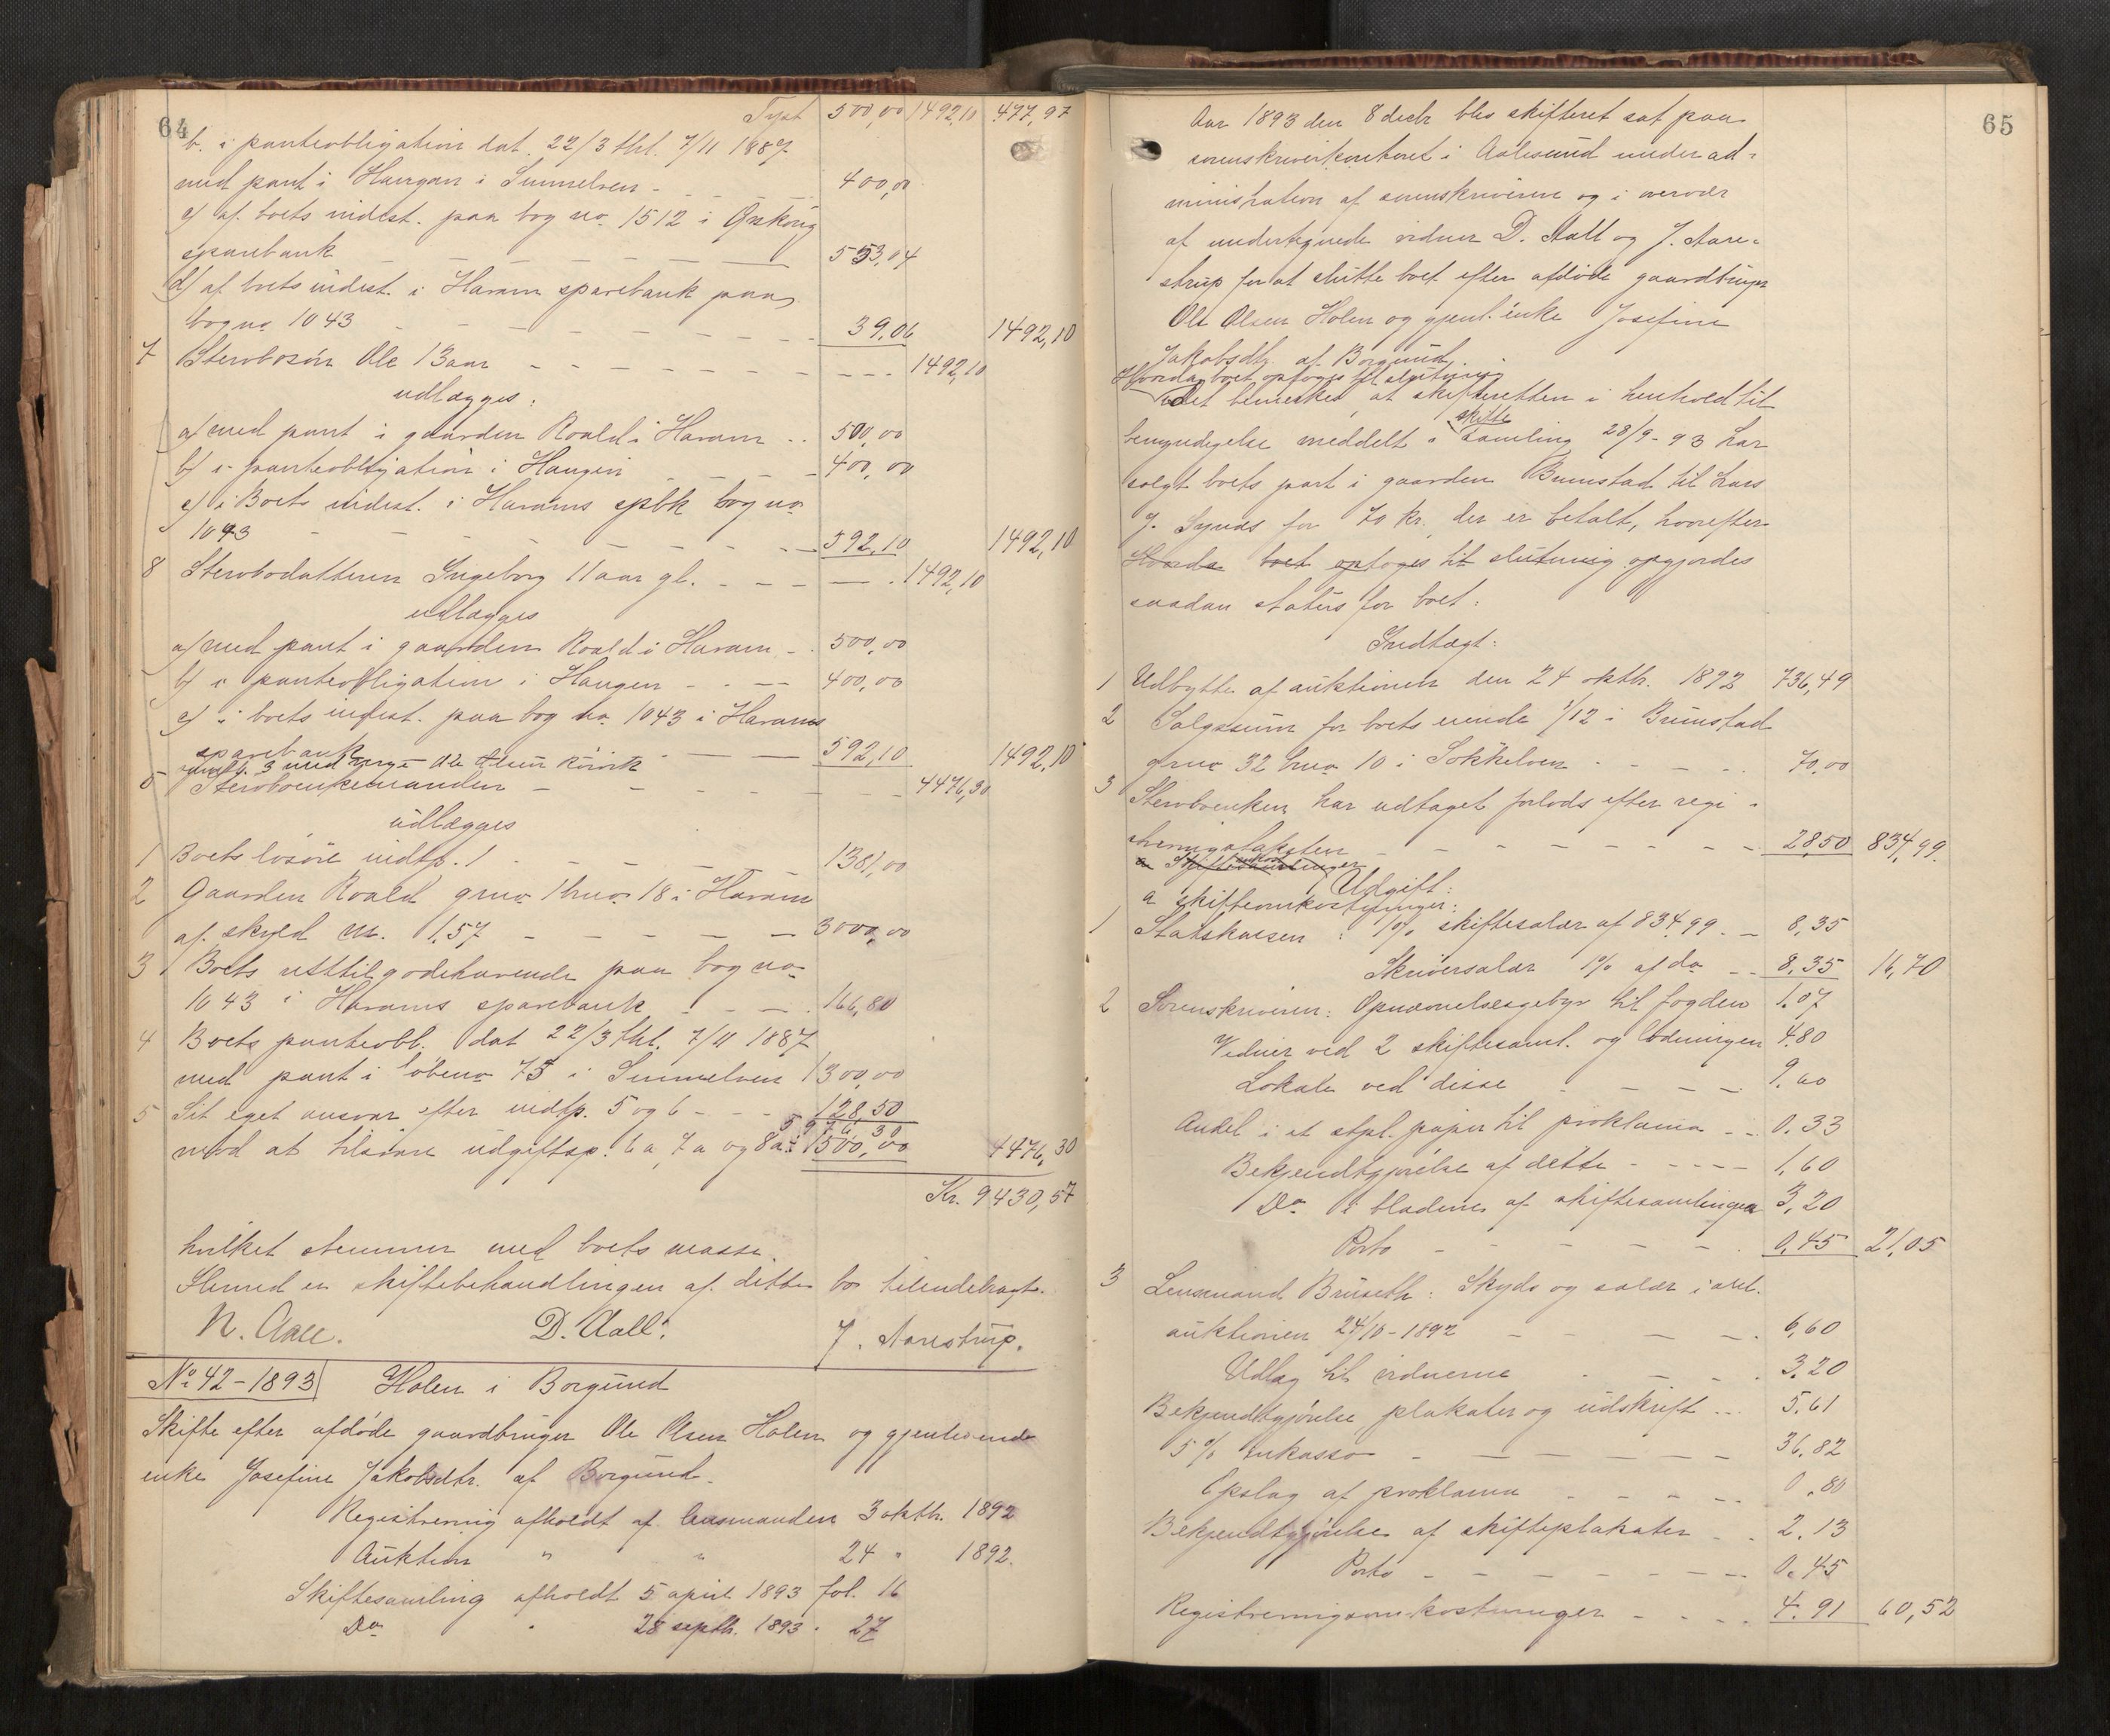 64
Tpt 500,00 1492,10 477,97
b. i panteobligation dat. 22/3 thl. 7/11 1887
med pant i Haugen i Sunnelven - 400,00
c) af boets indest. paa bog no. 1512 i Ørskoug
sparebank 553,04
d) af boets indest. i Haram sparebank paa
bog no 1043 39,06 1492,10
7 Stervbosøn Ole 13 aar 1492,10
udlægges:
a) med pant i gaarden Roald i Haram 500,00
b) i panteobligation i Haugen 400,00
c) i Boets indest. i Harams spbk bog no
1043 592,10 1492,10
8 Stervbodatteren Ingeborg 11 aar gl. 1492,10
udlægges
a) med pant i gaarden Roald i Haram 500,00
b) i panteobligation i Haugen 400,00
c) i boets indest. paa bog no 1043 i Harams
sparebank 592,10 1492,10
5 Stervboenkemanden 4476,30
udlægges
1 Boets løsøre indtp. 1 1381,00
2 Gaarden Roald gno 1 bno 18 i Haram
af skyld M. 1,57 3000,00
3 Boets resttilgodehavende paa bog no
1043 i Harams sparebank 166,80
4 Boets panteobl. dat 22/3 thl. 7/11 1887
med pant i løbeno 75 i Sunnelven 1300,00
5 Sit eget ansvar efter indtp. 5 og 6 128,50
5976,30
mod at tilsvare udgiftsp. 6a, 7a og 8a: 1500,00 4476,30
Kr. 9430,57
hvilket stemmer med boets masse.
Hermed er skiftebehandlingen af dette bo tilendebragt.
N. Aall. D. Aall. J. Aarestrup.
No 42 - 1893 Holen i Borgund
Skifte efter afdøde gaardbruger Ole Olsen Holen og gjenlevende
enke Josefine Jakobsdtr. af Borgund.
Registrering afholdt af lensmanden 3 oktbr. 1892
Auktion " " 24 " 1892.
Skiftesamling afholdt 5 april 1893 fol. 16
Do " 28 septbr. 1893 " 27
65
Aar 1893 den 8 decbr blev skifteret sat paa
sorenskriverkontoret i Aalesund under ad-
ministration af sorenskriveren og i overvær
af undertegnede vidner D. Aall og J. Aare-
strup for at slutte boet efter afdøde gaardbruger
Ole Olsen Holen og gjenl. enke Josefine
Jakobsdtr. af Borgund.
Hvorda boet optoges til slutning
Det bemerkes, at skifteretten i henhold til
bemyndigelse meddelt i skiftesamling 28/9-93 har
solgt boets part i gaarden Brunstad til Lars
J. Synes for 70 kr. der er betalt, hvorefter
Hvorda boet optoges til slutning opgjordes
saadan status for boet:
Indtægt:
1 Udbytte af auktionen den 24 oktbr. 1892 736,49
2 Salgssum for boets eiende 1/12 i Brunstad
gno 32 bno 10 i Søkkelven 70,00
3 Stervboenken har udtaget forlods efter regi-
streringstaksten 28,50 834,99.
Udgift:
a skifteomkostninger:
1 Statskassen: 1 % skiftesalær af 834,99 8,35
Skriversalær 1% af do 8,35 16,70
2 Sorenskriveren: Opnævnelsesgebyr til fogden 1.07
Vidner ved 2 skiftesaml. og lodningen 4.80
Lokale ved disse 9.60
Andel i et stpl. papir til proklama 0.33
Bekjendtgjørelse af dette 1,60
Do i bladene af skiftesamlingen 3,20
Porto 0,45 21,05
3 Lensmand Bruseth: Skyds og salær i anl.
auktionen 24/10-1892 6,60
Udlæg til vidnerne 3.20
Bekjendtgjørelse, plakater og udskrift 5.61
5 % inkasso 36,82
Opslag af proklama 0.80
Bekjendtgjørelse af skifteplakater 2.13
Porto 0.45
Registreringsomkostninger 4.91 60,52